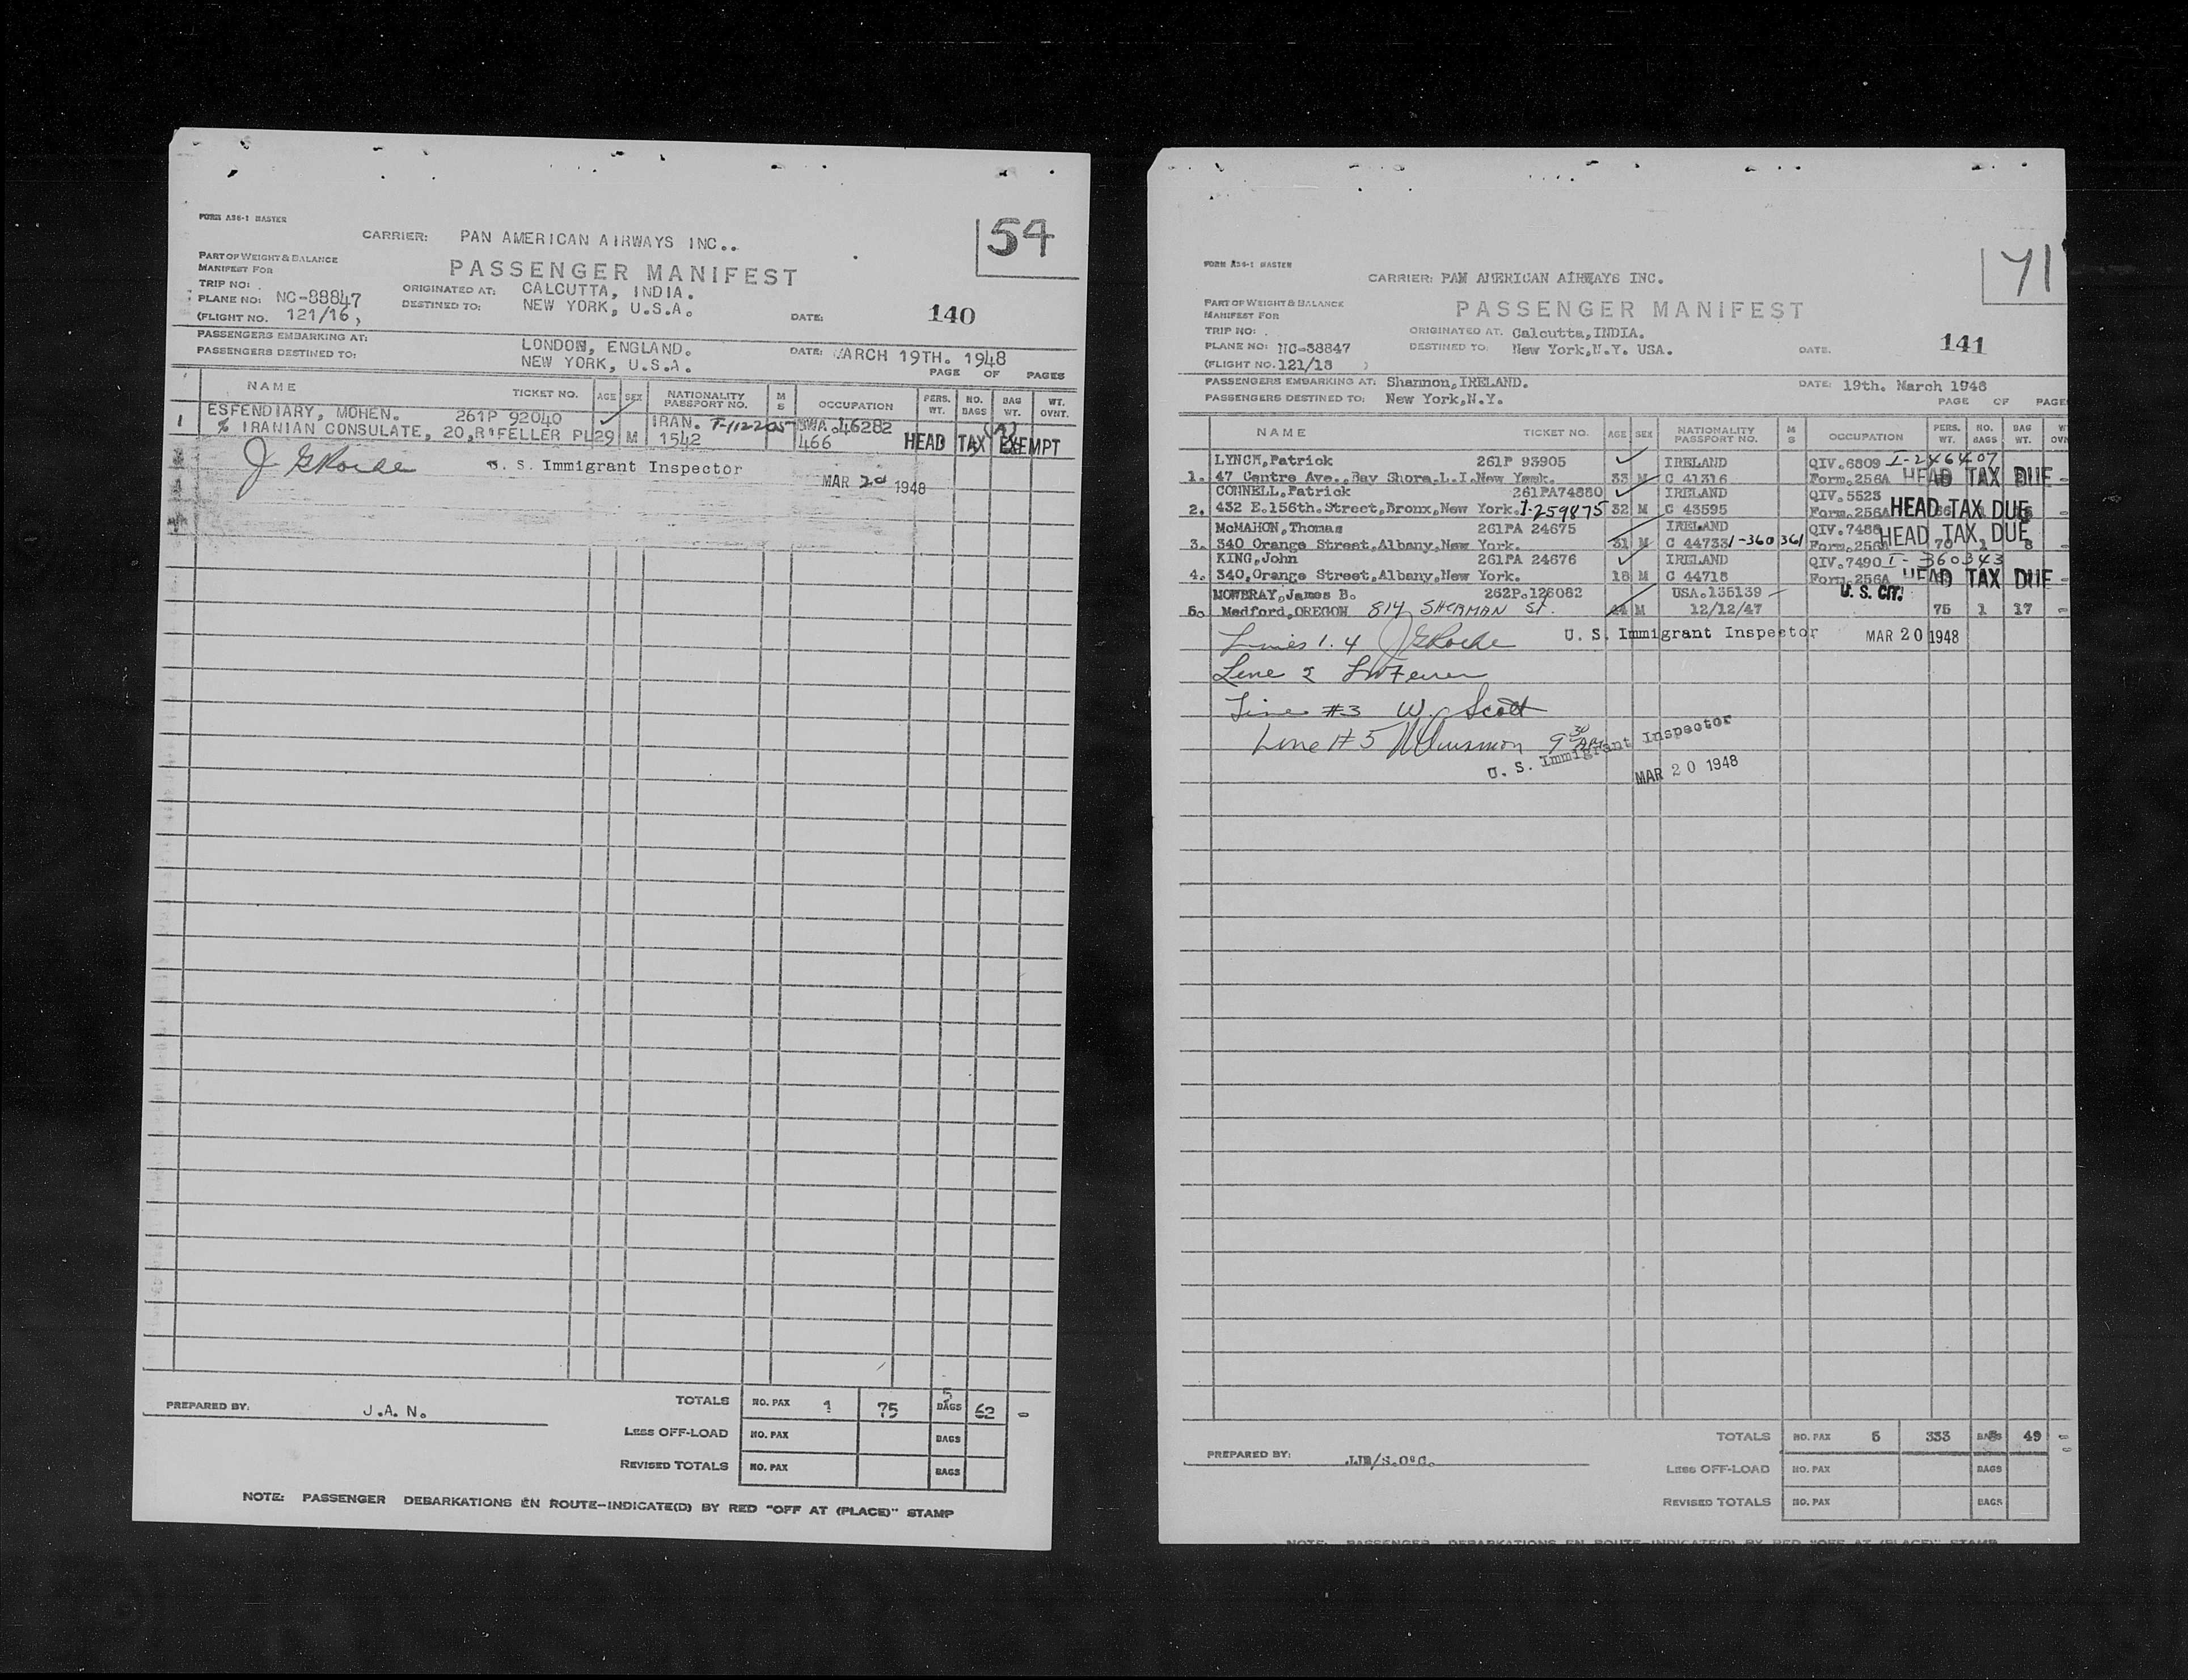 FORM A36-1 MASTER
54
CARRIER: PAN AMERICAN AIRWAYS INC..
PART OF WEIGHT & BALANCE
MANIFEST FOR
PASSENGER MANIFEST
TRIP NO: .
ORIGINATED AT: CALCUTTA, INDIA.
PLANE NO: NC-88847
DESTINED TO: NEW YORK, U.S.A.
(FLIGHT NO. 121/16 )
DATE: 140
PASSENGERS EMBARKING AT: LONDON, ENGLAND.
DATE: MARCH 19TH. 1948
PASSENGERS DESTINED TO: NEW YORK, U.S.A.
PAGE OF PAGES
NAME TICKET NO. AGE SEX NATIONALITY PASSPORT NO. M S OCCUPATION PERS. WT. NO. BAGS BAG WT. WT. OVNT.
1 ESFENDIARY, MOHEN. 261P 92040 IRAN. T-112205 46282 (A)
% IRANIAN CONSULATE, 20,R'FELLER PL 29 M 1542 466 HEAD TAX EXEMPT
J G Roche U. S. Immigrant Inspector MAR 20 1948
TOTALS NO. PAX 1 75 5 BAGS 62 -
PREPARED BY: J.A.N.
LESS OFF-LOAD NO. PAX BAGS
REVISED TOTALS NO. PAX BAGS
NOTE: PASSENGER DEBARKATIONS EN ROUTE-INDICATE(D) BY RED "OFF AT (PLACE)" STAMP
71
FORM A36-1 MASTER
CARRIER: PAN AMERICAN AIRWAYS INC.
PART OF WEIGHT & BALANCE
MANIFEST FOR
PASSENGER MANIFEST
TRIP NO: .
ORIGINATED AT. Calcutta,INDIA.
PLANE NO: NC-88847
DESTINED TO: New York,N.Y. USA.
DATE. 141
(FLIGHT NO. 121/18 )
PASSENGERS EMBARKING AT: Shannon,IRELAND.
DATE: 19th. March 1948
PASSENGERS DESTINED TO: New York,N.Y.
PAGE OF PAGE
NAME TICKET NO. AGE SEX NATIONALITY PASSPORT NO. M S OCCUPATION PERS. WT. NO. BAGS BAG WT.
LYNCH,Patrick 261P 93905 IRELAND QIV.6809 I-246407
1. 47 Centre Ave.,Bay Shore.L.I.New York. 33 M C 41316 Form.256A HEAD TAX DUE -
CONNELL,Patrick 261PA74880 IRELAND QIV.5523
2. 432 E.156th.Street,Bronx,New York. I-259875 32 M C 43595 Form.256A HEAD TAX DUE -
McMAHON,Thomas 261PA 24675 IRELAND QIV.7488 HEAD TAX DUE
3. 340 Orange Street,Albany,New York. 31 M C 44733 1-360361 Form.256A 70 1 8
KING,John 261PA 24676 IRELAND QIV.7490 I-360343
4. 340,Orange Street,Albany,New York. 18 M C 44718 Form.256A HEAD TAX DUE -
MOWBRAY,James B. 262P.126082 USA.135139 - U. S. CIT.
5. Medford,OREGON 814 SHERMAN ST. 44 M 12/12/47 75 1 17 -
Lines 1.4 J G Roche U. S. Immigrant Inspector MAR 20 1948
Line 2
Line #3 W. Scott
Line # 5 9 30
U. S. Immigrant Inspector
MAR 20 1948
TOTALS NO. PAX 5 333 BAGS 49 -
PREPARED BY: JJB/S.O'C.
LESS OFF-LOAD NO. PAX BAGS
REVISED TOTALS NO. PAX BAGS
NOTE: PASSENGER DEBARKATIONS EN ROUTE-INDICATE(D) BY RED "OFF AT (PLACE)" STAMP